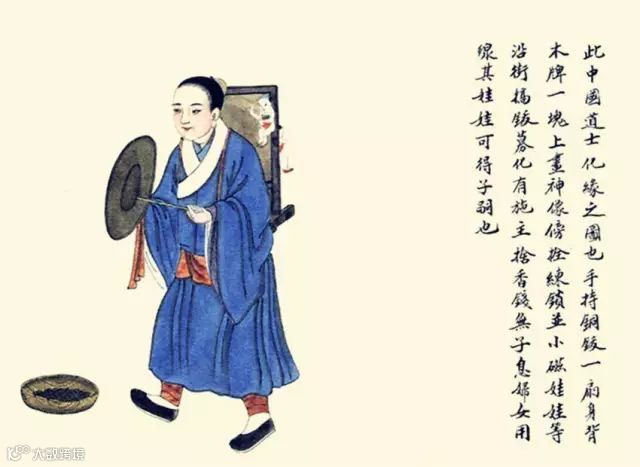 此中國道士化緣之圖也手持銅鈸一扇身背
木牌一塊上畫神像傍拴練鎖並小磁娃娃等
沿街搧鈸募化有施主捨香錢無子息婦女用
線其娃娃可得子嗣也
大数跨境